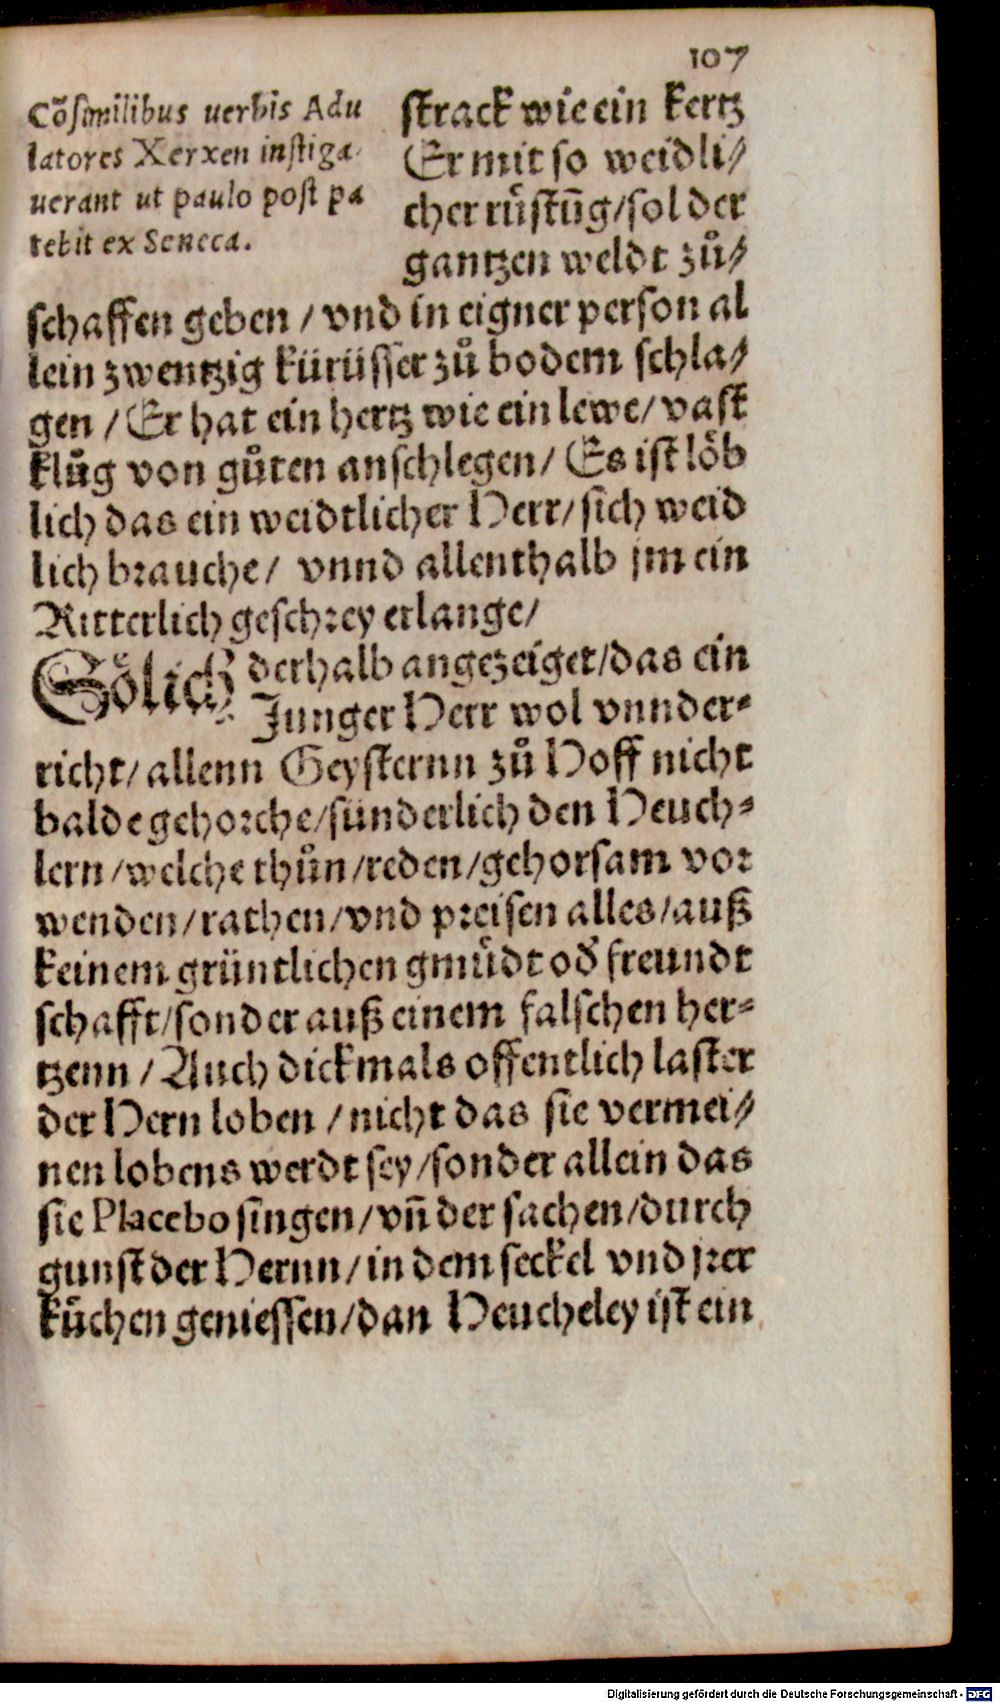 107
Cõſimilibus uerbis Adu
latores Xerxen inſtiga-
uerant ut paulo poſt pa
tebit ex Seneca.
ſtrack wie ein kertz
Er mit so weidli/
cher ruͤſtūg/ſol der
gantzen weldt zuͦ/
ſchaffen geben / vnd in eigner perſon al
lein zwentzig kürüſſer zuͦ bodem ſchla/
gen / Er hat ein hertz wie ein lewe/ vaſt
kluͦg von guͦten anſchlegen/ Es iſt loͤb
lich das ein weidtlicher Herr/ ſich weid
lich brauche/ vnnd allenthalb jm ein
Ritterlich geſchrey erlange/
Soͤlichs derhalb angezeiget/das ein
Junger Herr wol vnnder-
richt/ allenn Geyſternn zuͦ Hoff nicht
balde gehorche/ſünderlich den Heuch-
lern/welche thuͦn/reden/gehorſam vor
wenden/rathen/vnd preiſen alles/auß
keinem grüntlichen gmuͤdt od̕ freundt
ſchafft/ſonder auß einem falſchen her-
tzenn / Auch dickmals offentlich laſter
der Hern loben / nicht das ſie vermei/
nen lobens werdt ſey/ſonder allein das
ſie Placebo ſingen/vñ der ſachen/durch
gunſt der Hernn/in dem ſeckel vnd jrer
kuͤchen genieſſen/dan Heucheley iſt ein
Digitalisierung gefördert durch die Deutsche Forschungsgemeinschaft - DFG